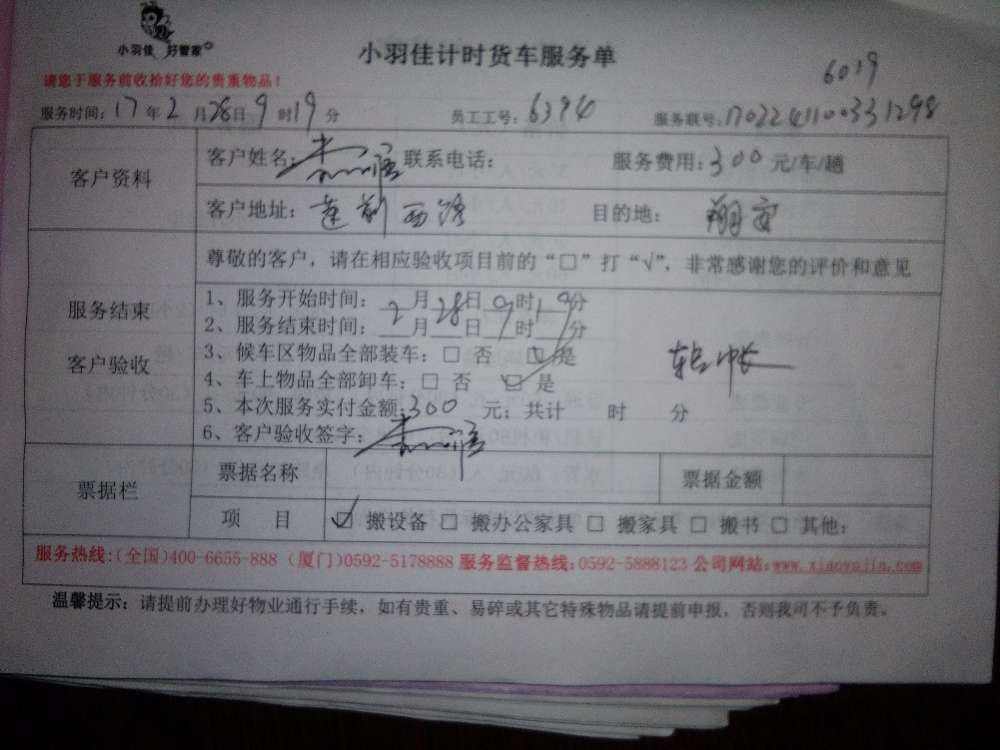 小羽佳 好管家
小羽佳计时货车服务单
请您于服务前收拾好您的贵重物品！
6019
服务时间：17年2月28日9时19分 员工工号：6394 服务联号：170224110033 1298
客户资料
客户姓名： 联系电话： 服务费用：300元/车/趟
客户地址：莲前西路 目的地：翔安
尊敬的客户，请在相应验收项目前的“□”打“√”，非常感谢您的评价和意见
服务结束
客户验收
1、服务开始时间：2月28日9时19分
2、服务结束时间：__月__日__时__分
3、候车区物品全部装车：□ 否 □ 是
4、车上物品全部卸车：□ 否 ☑ 是
转帐
5、本次服务实付金额：300 元；共计 时 分
6、客户验收签字：
票据栏
票据名称 票据金额
项 目 ☑ 搬设备 □ 搬办公家具 □ 搬家具 □ 搬书 □ 其他：
服务热线：(全国)400-6655-888 (厦门)0592-5178888 服务监督热线：0592-5888123 公司网站：www.xiaoyujia.com
温馨提示：请提前办理好物业通行手续，如有贵重、易碎或其它特殊物品请提前申报，否则我司不予负责。